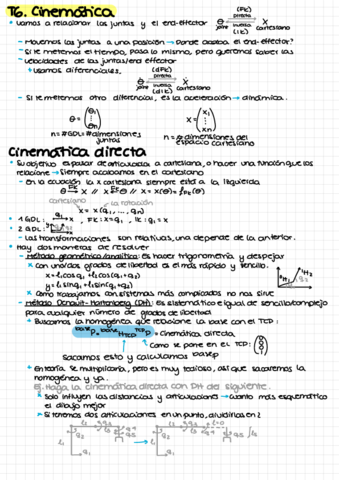 T6. Cinemática
• Vamos a relacionar las juntas y el end-effector θ ⇌ X
(FK) Directa
Inversa (IK)
joint cartesiano
– Movemos las juntas a una posición → Donde acaba el end-effector?
– Si le metemos el tiempo, pasa lo mismo, pero queremos saber las
velocidades de las juntas/end effector
• usamos diferenciales,
(dFK)
directa
inversa
(dIK)
joint cartesiano
– Si le metemos otro diferencial, es la aceleración → dinámica.
θ = (θ1 ⋮ θn) X = (x1 ⋮ xn)
n = #GDL = #dimensiones juntas
n = # dimensiones del espacio cartesiano
Cinemática directa
• Su objetivo es pasar de articulada a cartesiana, o hacer una función que los
relacione → Siempre acabamos en el cartesiano
– En la ecuación la x cartesiana siempre está a la izquierda
cartesiano la rotación
x = x(q1, ..., qn)
• 1 GDL: q1 x , FK: x=q1 , IK: q1=x
• 2 GDL:
– Las transformaciones son relativas, una depende de la anterior.
• Hay dos maneras de resolver
– Método geométrico/analítico: es hacer trigonometría y despejar
× con uno/dos grados de libertad es el más rápido y sencillo.
x = l1cosq1 + l2cos(q1+q2)
y = l1sinq1 + l2sin(q1+q2)
× como trabajamos con sistemas más complicados no nos sirve
– Método Denavit-Hartenberg (DH): es sistemático e igual de sencillo/complejo
para cualquier número de grados de libertad
• Buscamos la homogénea que relacione la base con el TCP:
baseP = baseHTCP TCPP = cinemática directa,
como se pone en el TCP:
sacamos esto y calculamos baseP
• En teoría se multiplicaría, pero es muy tedioso, así que sacaremos la
homogénea y ya.
Ej. Haga la cinemática directa con DH del siguiente.
× Solo influyen las distancias y articulaciones → cuanto más esquemático
el dibujo mejor
× Si tenemos dos articulaciones en un punto, divídirlas en 2